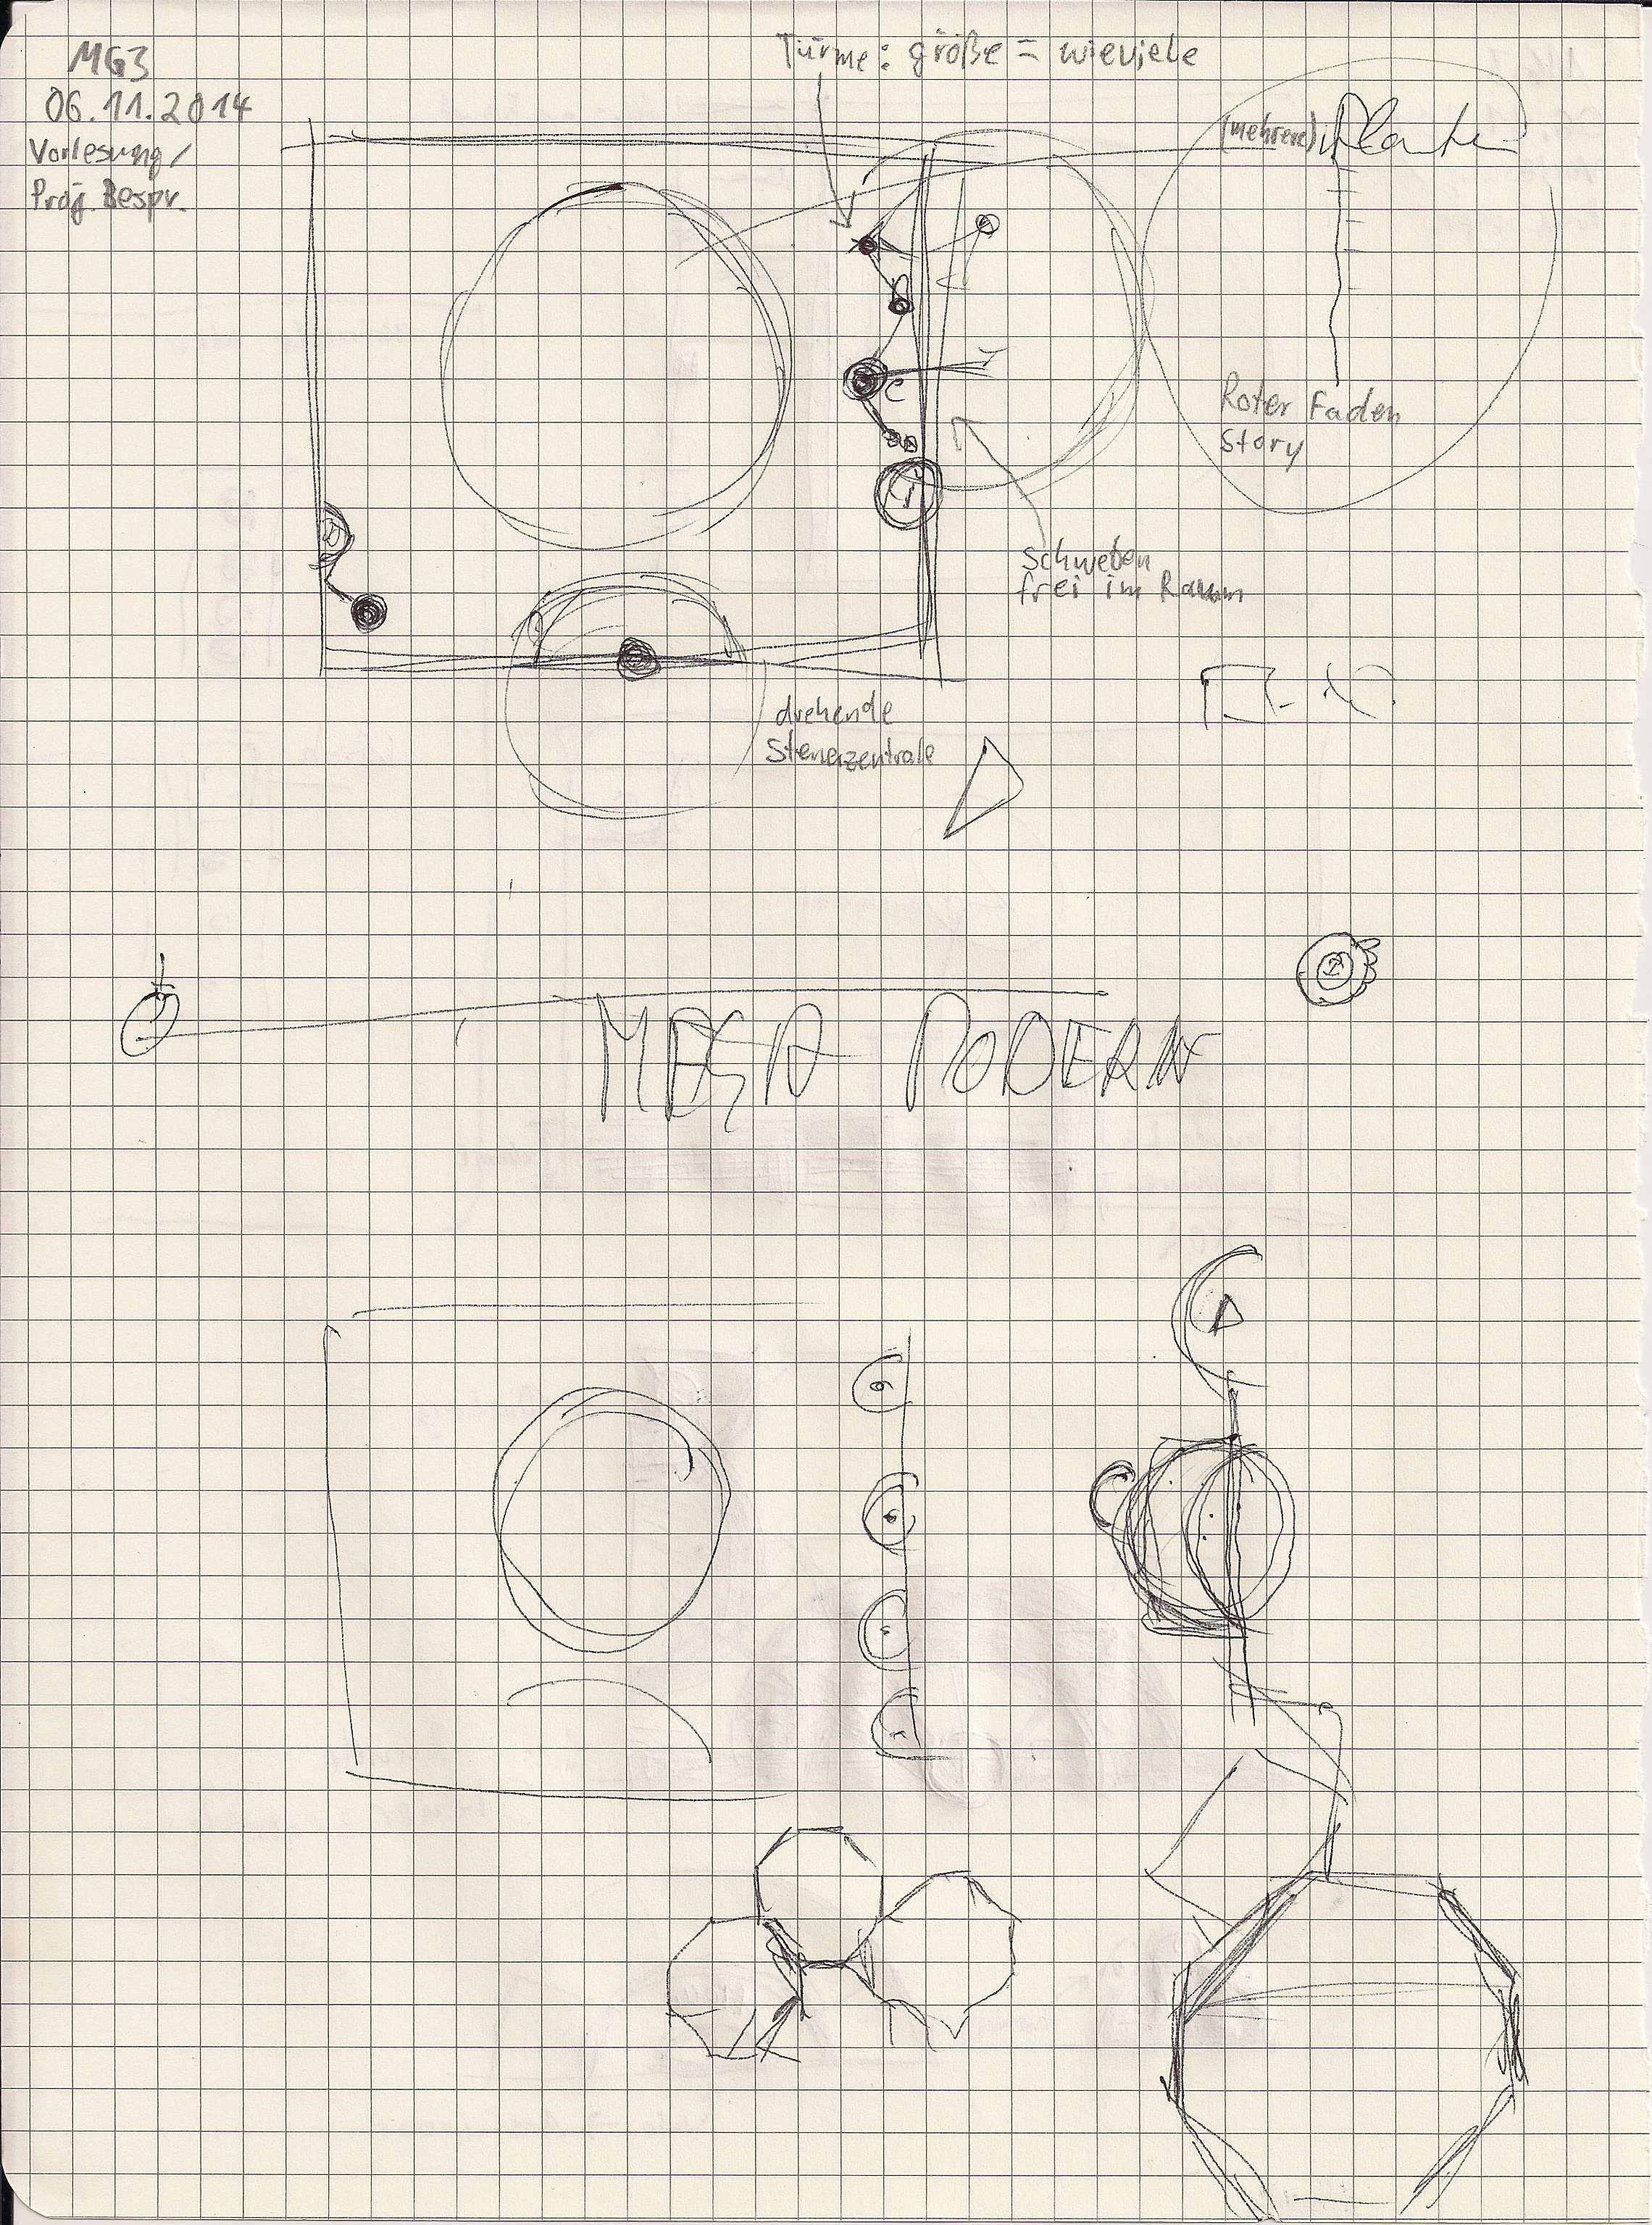 MG3
06.11.2014
Vorlesung/
Proj. Bespr.
Türme: größe = wieviele
(mehrere)
Roter Faden
Story
schweben
frei im Raum
drehende
Steuerzentrale
MEGA MODERN